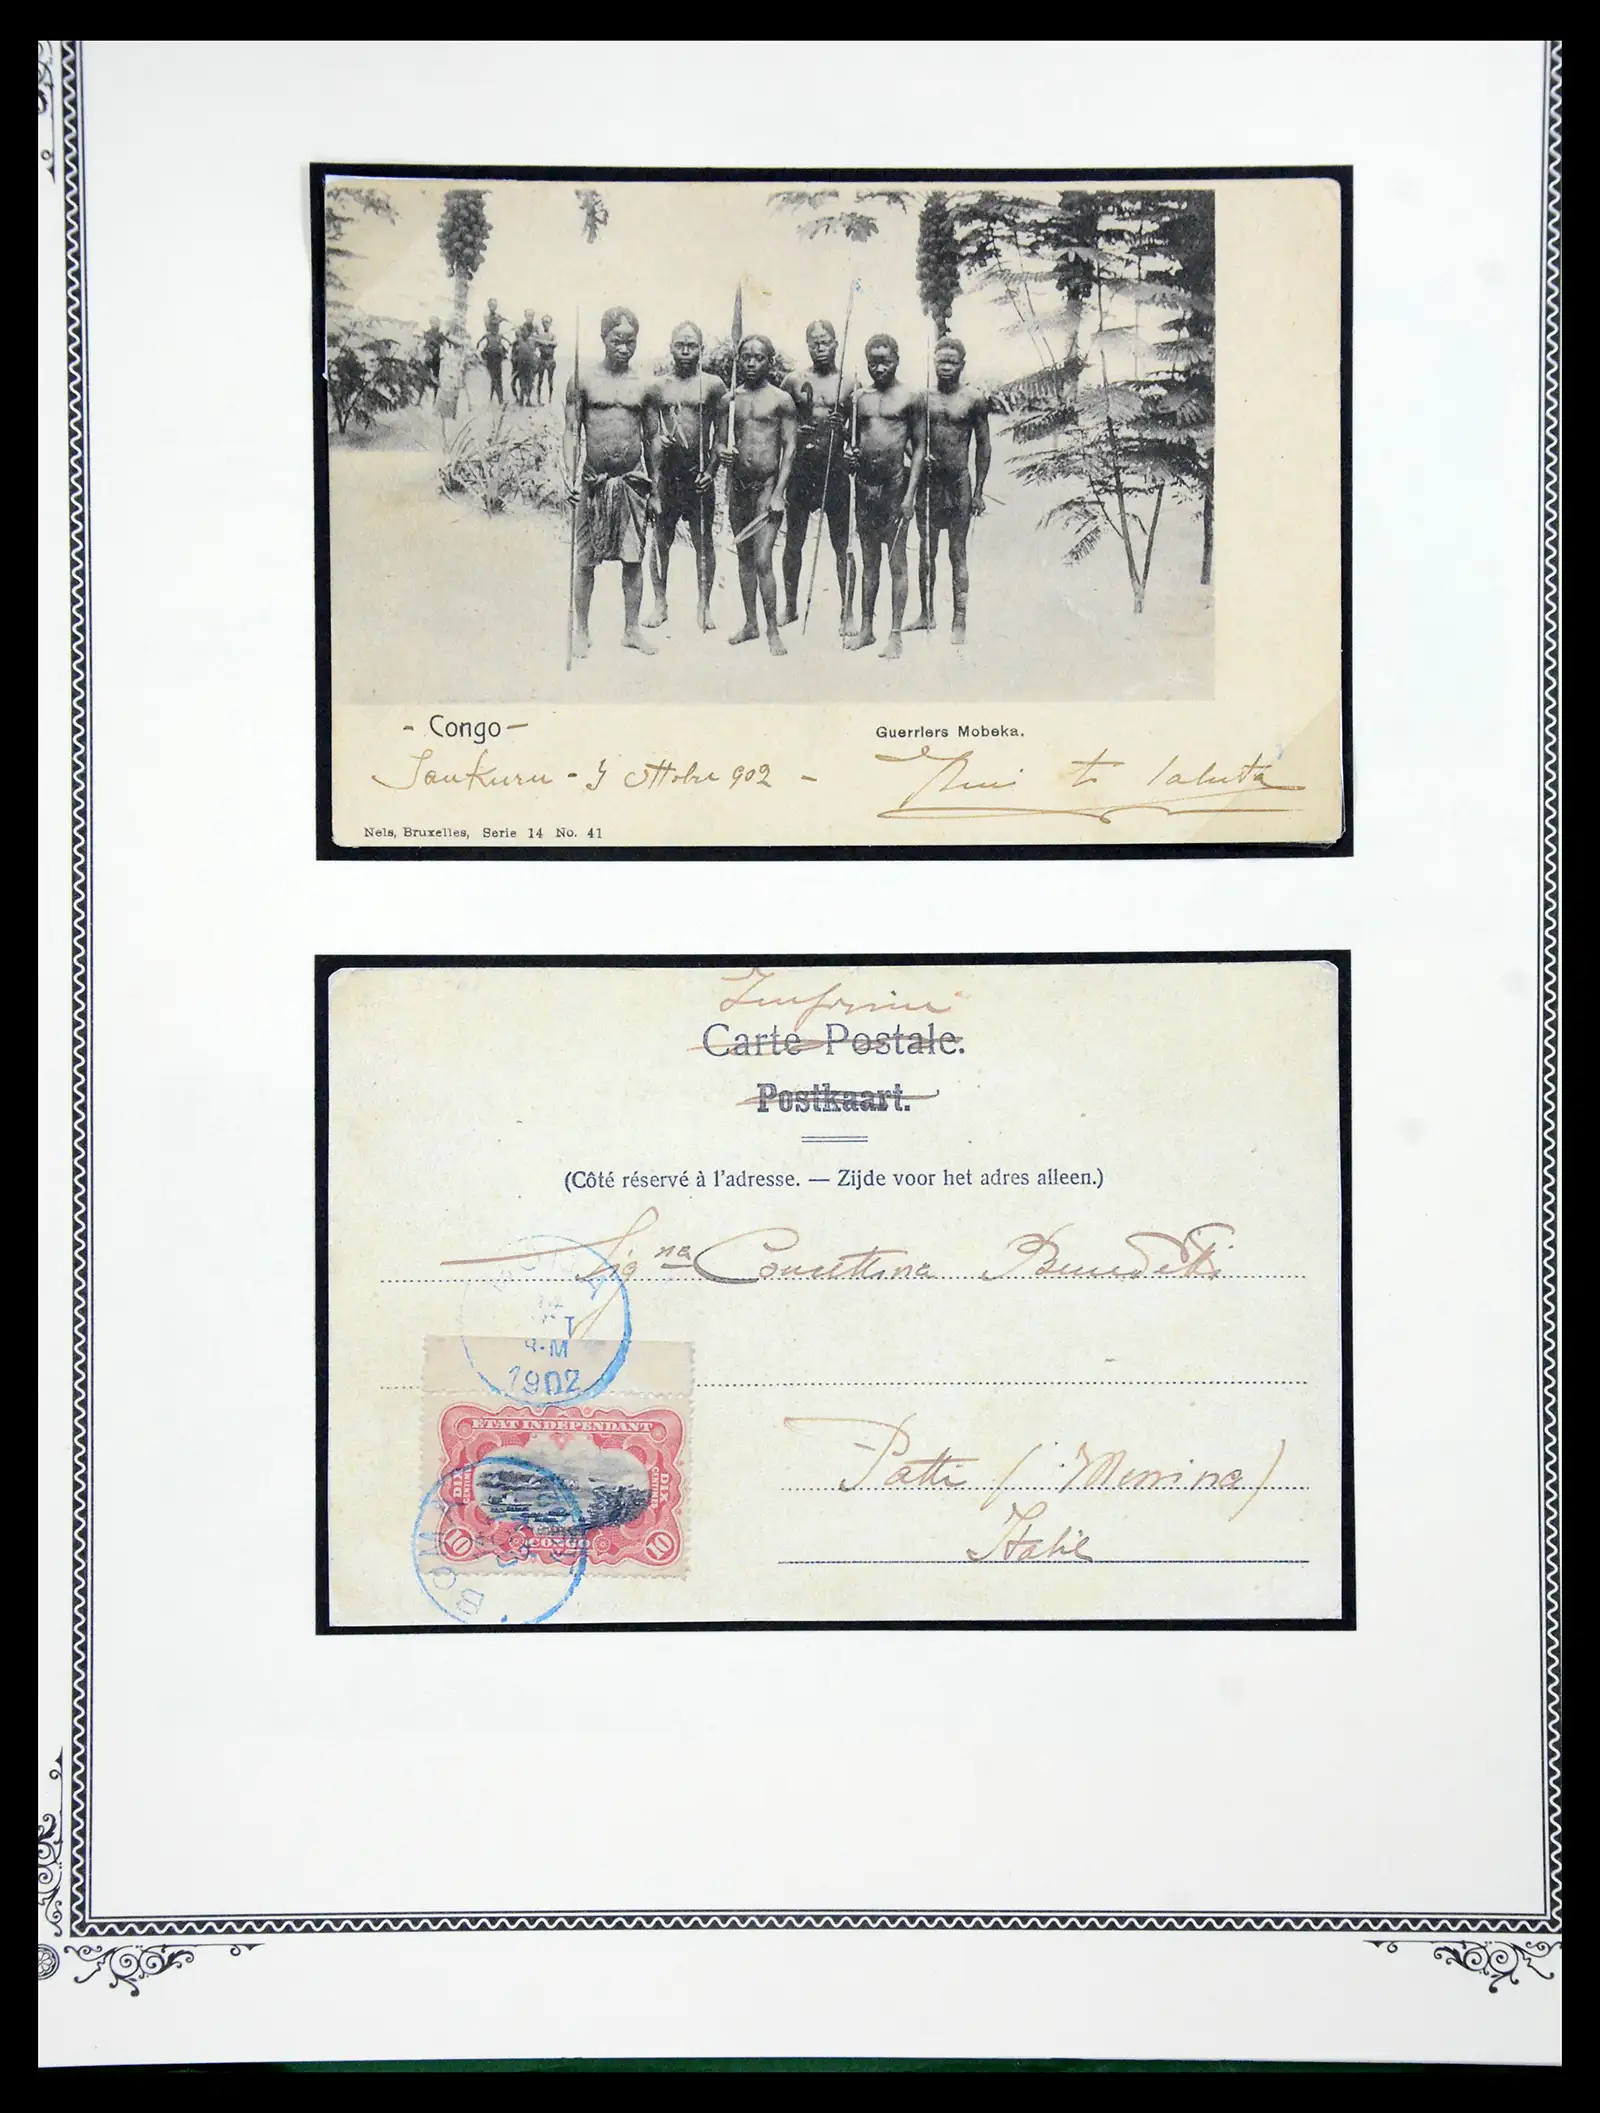 - Congo -
Guerriers Mobeka.
Sankuru - 5 Ottobre 902 -
ti saluta
Nels, Bruxelles, Serie 14 No. 41
Imprimé
Carte Postale.
Postkaart.
(Côté réservé à l'adresse. — Zijde voor het adres alleen.)
Signa Concettina Benedetti
BOMA
1902
ETAT INDÉPENDANT
DIX CENTIMES
DIX CENTIMES
10 CONGO 10
BOMA
Patti (Messina)
Italie